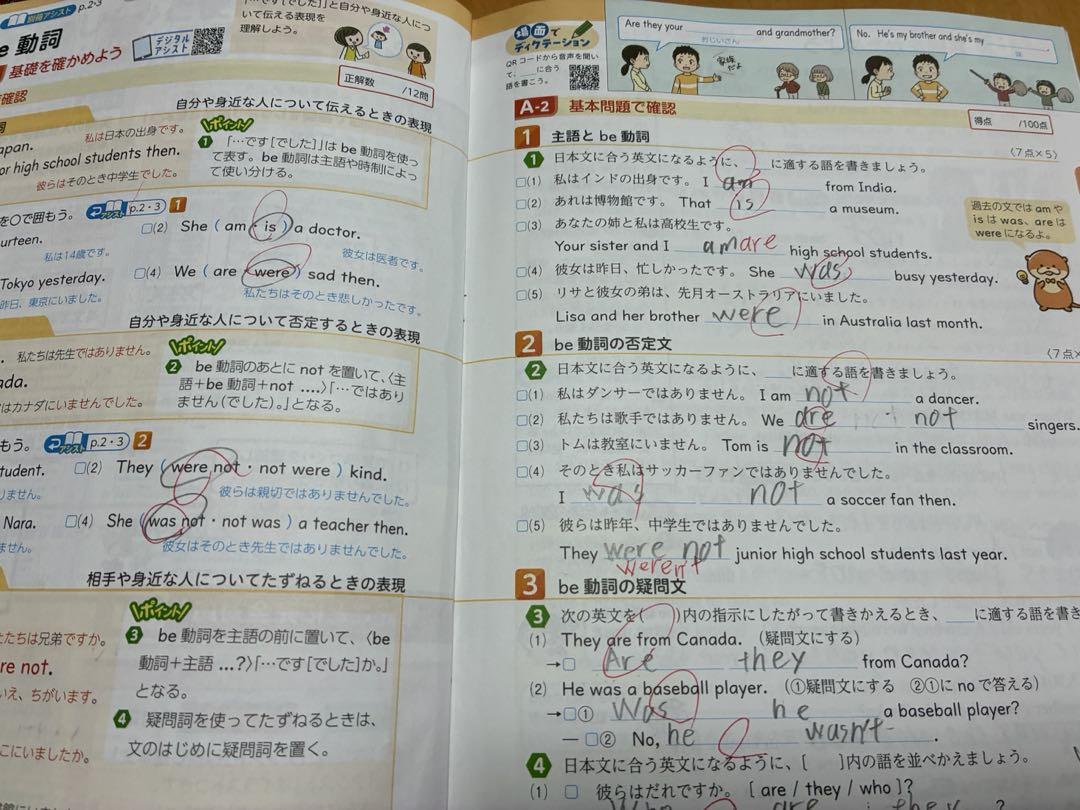 別冊アシスト p.2・3
be 動詞
基礎を確かめよう
デジタルアシスト
「…です[でした]」と自分や身近な人について伝える表現を理解しよう。
正解数 /12問
自分や身近な人について伝えるときの表現
私は日本の出身です。
apan.
or high school students then.
彼らはそのとき中学生でした。
ポイント
1 「…です[でした]」は be 動詞を使って表す。be 動詞は主語や時制によって使い分ける。
を○で囲もう。 アシスト p.2・3 1
urteen.
私は14歳です。
(2) She ( am ・ is ) a doctor.
彼女は医者です。
Tokyo yesterday.
昨日、東京にいました。
(4) We ( are ・ were ) sad then.
私たちはそのとき悲しかったです。
自分や身近な人について否定するときの表現
私たちは先生ではありません。
ada.
はカナダにいませんでした。
ポイント
2 be 動詞のあとに not を置いて、〈主語+be 動詞+not ….〉「…ではありません(でした)。」となる。
もう。 アシスト p.2・3 2
tudent.
りません。
(2) They ( were not ・ not were ) kind.
彼らは親切ではありませんでした。
Nara.
ません。
(4) She ( was not ・ not was ) a teacher then.
彼女はそのとき先生ではありませんでした。
相手や身近な人についてたずねるときの表現
たちは兄弟ですか。
re not.
いえ、ちがいます。
こにいましたか。
ポイント
3 be 動詞を主語の前に置いて、〈be 動詞+主語 …?〉「…です[でした]か。」となる。
4 疑問詞を使ってたずねるときは、文のはじめに疑問詞を置く。
場面でディクテーション
QR コードから音声を聞いて、___に合う語を書こう。
Are they your ___ and grandmother?
おじいさん
家族だよ
No. He's my brother and she's my ___
A-2 基本問題で確認
得点 /100点
1 主語と be 動詞
〈7点×5〉
1 日本文に合う英文になるように、___に適する語を書きましょう。
(1) 私はインドの出身です。 I am from India.
(2) あれは博物館です。 That is a museum.
(3) あなたの姉と私は高校生です。
Your sister and I am are high school students.
(4) 彼女は昨日、忙しかったです。 She was busy yesterday.
(5) リサと彼女の弟は、先月オーストラリアにいました。
Lisa and her brother were in Australia last month.
過去の文では am や is は was、are は were になるよ。
2 be 動詞の否定文
〈7点×
2 日本文に合う英文になるように、___に適する語を書きましょう。
(1) 私はダンサーではありません。 I am not a dancer.
(2) 私たちは歌手ではありません。 We are not singers.
(3) トムは教室にいません。 Tom is not in the classroom.
(4) そのとき私はサッカーファンではありませんでした。
I was not a soccer fan then.
(5) 彼らは昨年、中学生ではありませんでした。
They were not junior high school students last year.
weren't
3 be 動詞の疑問文
3 次の英文を( )内の指示にしたがって書きかえるとき、___に適する語を書き
(1) They are from Canada. (疑問文にする)
→ Are they from Canada?
(2) He was a baseball player. (①疑問文にする ②①に no で答える)
→ ① Was he a baseball player?
— ② No, he wasn't .
4 日本文に合う英文になるように、[ ]内の語を並べかえましょう。
(1) 彼らはだれですか。 [ are / they / who ]?
Who are they